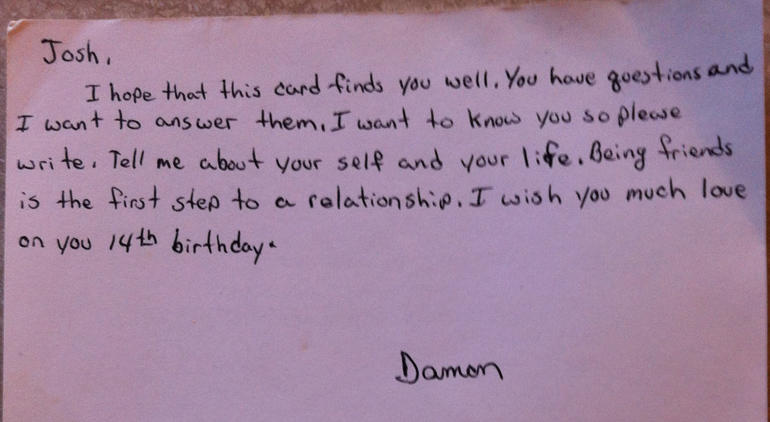 Josh,
I hope that this card finds you well. You have questions and
I want to answer them. I want to know you so please
write. Tell me about your self and your life. Being friends
is the first step to a relationship. I wish you much love
on you 14th birthday.
Damon